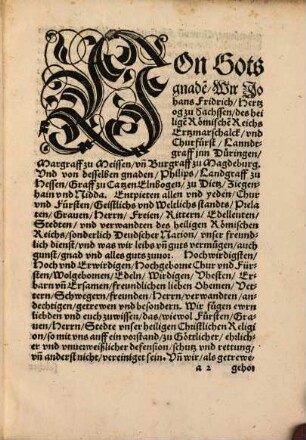 VOn Gots
gnadẽ/ Wir Jo
hans Fridrich/ Hertz
og zu Sachssen/ des hei
ligẽ Römischẽ Reichs
Ertzmarschalck/ vnd
Churfürst/ Lanndt-
graff inn Düringen/
Margraff zu Meissen/ vñ Burgraff zu Magdeburg.
Vnd von desselben gnaden/ Philips/ Landgraff zu
Hessen/ Graff zu Catzen Elnbogen/ zu Dietz/ Siegen-
hain vnd Nidda. Empieten allen vnd yeden/ Chur
vnd Fürsten/ Geistlichs vnd Welclichs standts/ Prela
ten/ Grauen/ Herrn/ Freien/ Rittern/ Edelleuten/
Stedten/ vnd verwandten des heiligen Römischen
Reichs/ sonderlich Deudscher Nation/ vnser freund-
lich dienst/ vnd was wir liebs vñ guts vermügen/ auch
gunst/ gnad vnd alles guts zuuor. Hochwirdigsten/
Hoch vnd Erwirdigen/ Hochgeborne Chur vnd Für-
sten/ Wolgebornen/ Edeln/ Wirdigen/ Vhesten/ Er-
barn vñ Ersamen/ freundlichen lieben Ohemen/ Vet-
tern/ Schwegern/ freunden/ Herrn/ verwandten/ an-
dechtigen/ getrewen vnd besondern. Wir fügen ewrn
liebden vnd euch zuwissen/ das/ wiewol Fürsten/ Gra-
uen/ Herrn/ Stedte vnser heiligen Christlichen Religi
on/ so mit vns auff ein vorstand/ zu Göttlicher/ ehrlich-
er vnd vnuerweißlicher defension/ schutz vnd rettung/
vñ anderst nicht/ vereiniget sein. Vñ wir/ als getrewe/
a 2 gehor